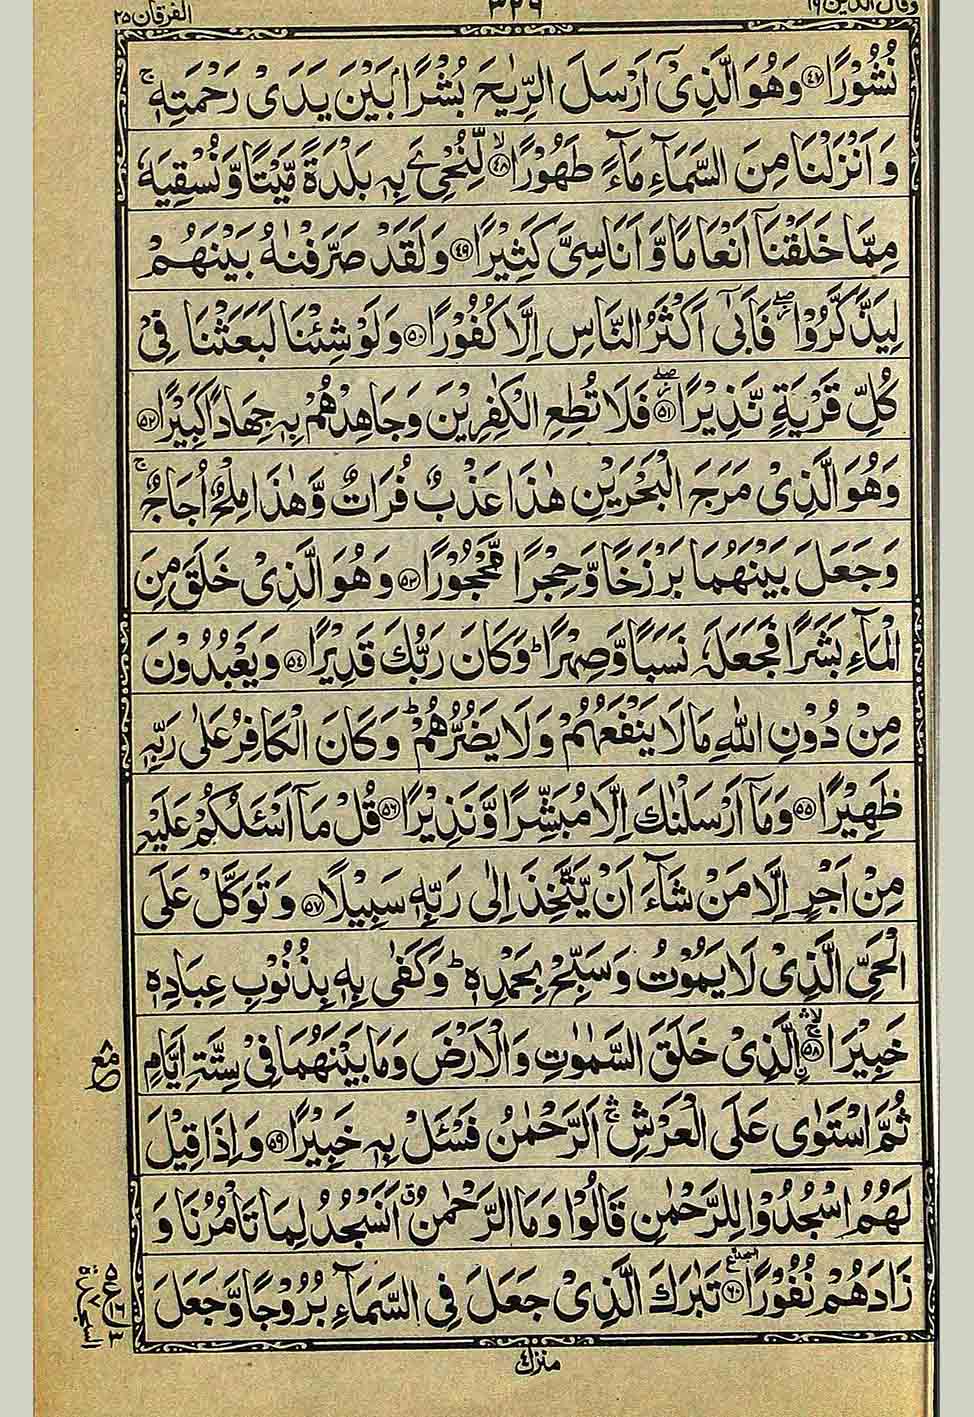 وقال الذين ١٩ ٣٢٩ الفرقان ٢٥
نُشُوْرًا ﴿٤٧﴾ وَهُوَ الَّذِىْۤ اَرْسَلَ الرِّيٰحَ بُشْرًۢا بَيْنَ يَدَىْ رَحْمَتِهٖ ۚ
وَ اَنْزَلْنَا مِنَ السَّمَآءِ مَآءً طَهُوْرًا ۙ﴿٤٨﴾ لِّنُحْیِۦَ بِهٖ بَلْدَةً مَّيْتًا وَّ نُسْقِيَهٗ
مِمَّا خَلَقْنَاۤ اَنْعَامًا وَّ اَنَاسِىَّ كَثِيْرًا ﴿٤٩﴾ وَ لَقَدْ صَرَّفْنٰهُ بَيْنَهُمْ
لِيَذَّكَّرُوْا ۖ فَاَبٰٓى اَكْثَرُ النَّاسِ اِلَّا كُفُوْرًا ﴿٥٠﴾ وَ لَوْ شِئْنَا لَبَعَثْنَا فِىْ
كُلِّ قَرْيَةٍ نَّذِيْرًا ۖ﴿٥١﴾ فَلَا تُطِعِ الْكٰفِرِيْنَ وَ جَاهِدْهُمْ بِهٖ جِهَادًا كَبِيْرًا ﴿٥٢﴾
وَ هُوَ الَّذِىْ مَرَجَ الْبَحْرَيْنِ هٰذَا عَذْبٌ فُرَاتٌ وَّ هٰذَا مِلْحٌ اُجَاجٌ ۚ
وَ جَعَلَ بَيْنَهُمَا بَرْزَخًا وَّ حِجْرًا مَّحْجُوْرًا ﴿٥٣﴾ وَ هُوَ الَّذِىْ خَلَقَ مِنَ
الْمَآءِ بَشَرًا فَجَعَلَهٗ نَسَبًا وَّ صِهْرًا ؕ وَ كَانَ رَبُّكَ قَدِيْرًا ﴿٥٤﴾ وَ يَعْبُدُوْنَ
مِنْ دُوْنِ اللّٰهِ مَا لَا يَنْفَعُهُمْ وَ لَا يَضُرُّهُمْ ؕ وَ كَانَ الْكَافِرُ عَلٰى رَبِّهٖ
ظَهِيْرًا ﴿٥٥﴾ وَ مَاۤ اَرْسَلْنٰكَ اِلَّا مُبَشِّرًا وَّ نَذِيْرًا ﴿٥٦﴾ قُلْ مَاۤ اَسْئَلُكُمْ عَلَيْهِ
مِنْ اَجْرٍ اِلَّا مَنْ شَآءَ اَنْ يَّتَّخِذَ اِلٰى رَبِّهٖ سَبِيْلًا ﴿٥٧﴾ وَ تَوَكَّلْ عَلَى
الْحَىِّ الَّذِىْ لَا يَمُوْتُ وَ سَبِّحْ بِحَمْدِهٖ ؕ وَ كَفٰى بِهٖ بِذُنُوْبِ عِبَادِهٖ
خَبِيْرَا ۚۛۙ﴿٥٨﴾ ۟الَّذِىْ خَلَقَ السَّمٰوٰتِ وَ الْاَرْضَ وَ مَا بَيْنَهُمَا فِىْ سِتَّةِ اَيَّامٍ
مع
ثُمَّ اسْتَوٰى عَلَى الْعَرْشِ ۚۛ اَلرَّحْمٰنُ فَسْئَلْ بِهٖ خَبِيْرًا ﴿٥٩﴾ وَ اِذَا قِيْلَ
لَهُمُ اسْجُدُوْا لِلرَّحْمٰنِ قَالُوْا وَ مَا الرَّحْمٰنُ ۗ اَنَسْجُدُ لِمَا تَاْمُرُنَا وَ
زَادَهُمْ نُفُوْرًا ﴿٦٠﴾ تَبٰرَكَ الَّذِىْ جَعَلَ فِى السَّمَآءِ بُرُوْجًا وَّ جَعَلَ
ع
٥
١٦
٣
منزل ٤